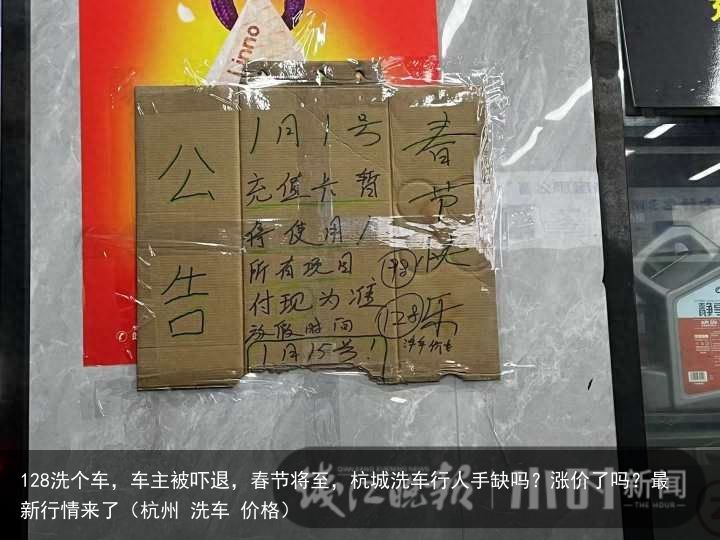 Linno
公告
1月1号
充值卡暂
停使用!
所有项目
付现为准
放假时间
1月15号!
春节快乐
98
128
洗车价格
128洗个车，车主被吓退，春节将至，杭城洗车行人手缺吗？涨价了吗？最
新行情来了（杭州 洗车 价格）
钱江晚报
小时新闻
THE HOUR